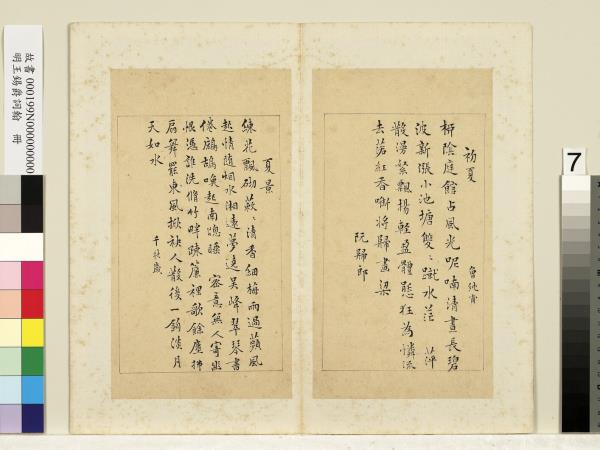 初夏
曾純甫
柳陰庭館占風光呢喃清晝長碧
波新漲小池塘雙〻蹴水茫 萍
散漫絮飄揚輕盈體態狂為憐流
去落紅香啣將歸畫梁
阮歸郎
夏景
楝花飄砌蔌〻清香細梅雨過蘋風
起情隨烟水湘遠夢遶吳峰翠琴書
倦鷓鴣喚起南窻睡 密意無人寄幽
恨憑誰洗脩竹畔疎簾裡歌餘塵拂
扇舞罷東風掀袂人散後一鉤淡月
天如水
千秋歲
故書 000199N000000000
明王錫爵詞翰 冊
7